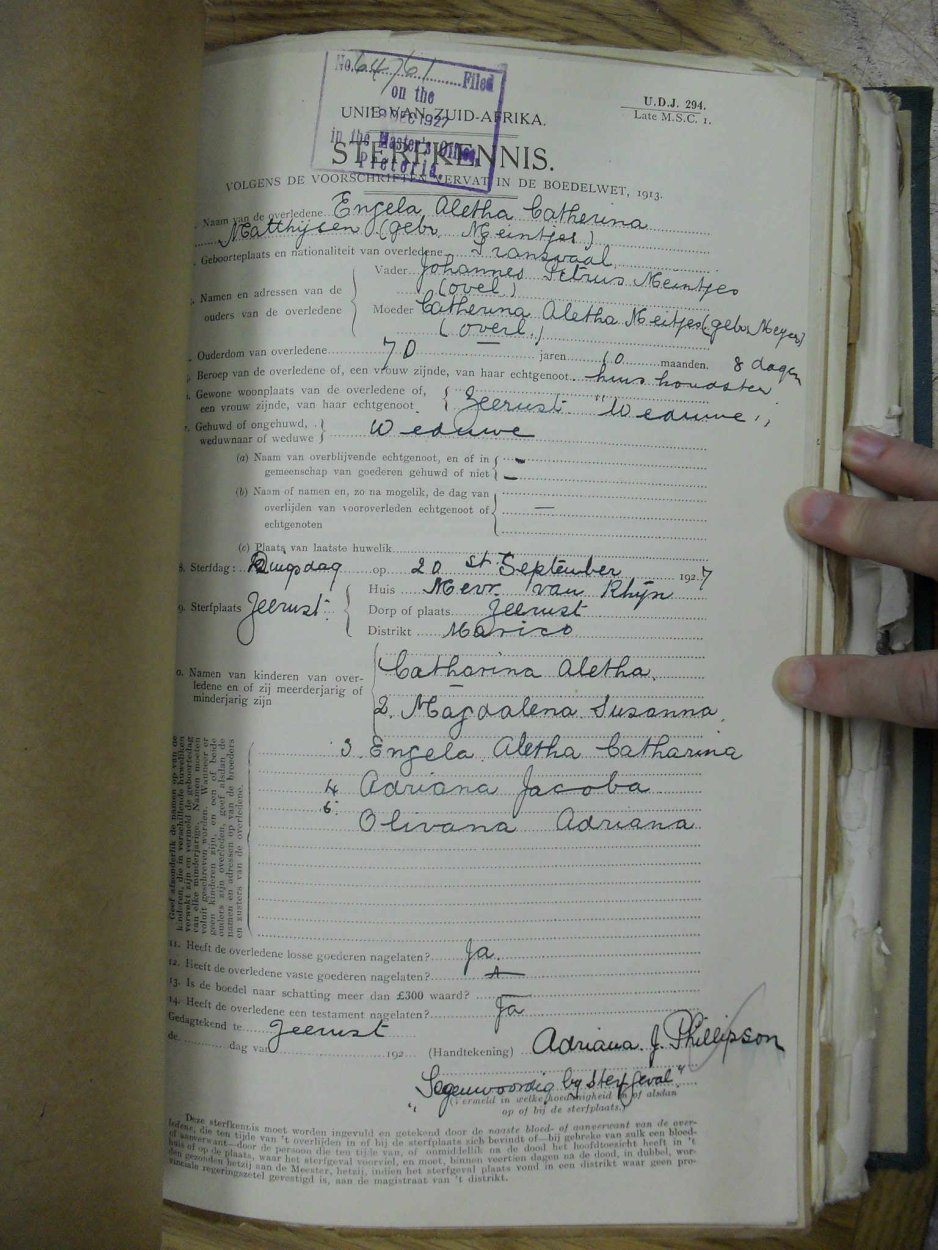 No. 6476/ Filed
on the
DEC 1927
in the Master's Office,
Pretoria.
U.D.J. 294.
Late M.S.C. 1.
UNIE VAN ZUID-AFRIKA.
STERFKENNIS.
VOLGENS DE VOORSCHRIFTEN VERVAT IN DE BOEDELWET, 1913.
Naam van de overledene Engela Aletha Catherina
Matthijsen (gebr Meintjes)
Geboorteplaats en nationaliteit van overledene Transvaal
Namen en adressen van de ouders van de overledene
Vader Johannes Petrus Meintjes
(ovel.)
Moeder Catherina Aletha Meitjes (gebr Meyer)
(overl.)
Ouderdom van overledene 70 jaren 10 maanden. 8 dagen
Beroep van de overledene of, een vrouw zijnde, van haar echtgenoot huishoudster
Gewone woonplaats van de overledene of, een vrouw zijnde, van haar echtgenoot Zeerust "Weduwe"
Gehuwd of ongehuwd, weduwnaar of weduwe Weduwe
(a) Naam van overblijvende echtgenoot, en of in gemeenschap van goederen gehuwd of niet –
–
(b) Naam of namen en, zo na mogelik, de dag van overlijden van vooroverleden echtgenoot of echtgenoten —
(c) Plaats van laatste huwelik
8. Sterfdag: Dinsdag op 20 st September 1927
9. Sterfplaats Zeerust
Huis Mevr van Rhijn
Dorp of plaats Zeerust
Distrikt Marico
0. Namen van kinderen van overledene en of zij meerderjarig of minderjarig zijn
Catharina Aletha.
2. Magdalena Susanna
3. Engela Aletha Catharina
4 Adriana Jacoba
5. Olivana Adriana
Geef afzonderlik de namen op van de
kinderen, die in verschillende huweliken
verwekt zijn en vermeld de geboortedag
van elke minderjarige. Namen moeten
voluit geschreven worden. Wanneer er
geen kinderen zijn, en een of beide
ouders zijn overleden, geef alsdan de
namen en adressen op van de broeders
en zusters van de overledene.
11. Heeft de overledene losse goederen nagelaten? Ja.
12. Heeft de overledene vaste goederen nagelaten?
13. Is de boedel naar schatting meer dan £300 waard? —
14. Heeft de overledene een testament nagelaten? Ja
Gedagtekend te Zeerust
de dag van 192
(Handtekening) Adriana. J. Phillipson
"Tegenwoordig by Sterfgeval"
(Vermeld in welke hoedanigheid en of alsdan
op of bij de sterfplaats.)
Deze sterfkennis moet worden ingevuld en getekend door de naaste bloed- of aanverwant van de over-
ledene, die ten tijde van 't overlijden in of bij de sterfplaats zich bevindt of—bij gebreke van zulk een bloed-
of aanverwant—door de persoon die ten tijde van, of onmiddellik na de dood het hoofdtoezicht heeft in 't
huis of op de plaats, waar het sterfgeval voorviel, en moet, binnen veertien dagen na de dood, in dubbel, wor-
den gezonden hetzij aan de Meester, hetzij, indien het sterfgeval plaats vond in een distrikt waar geen pro-
vinciale regeringszetel gevestigd is, aan de magistraat van 't distrikt.